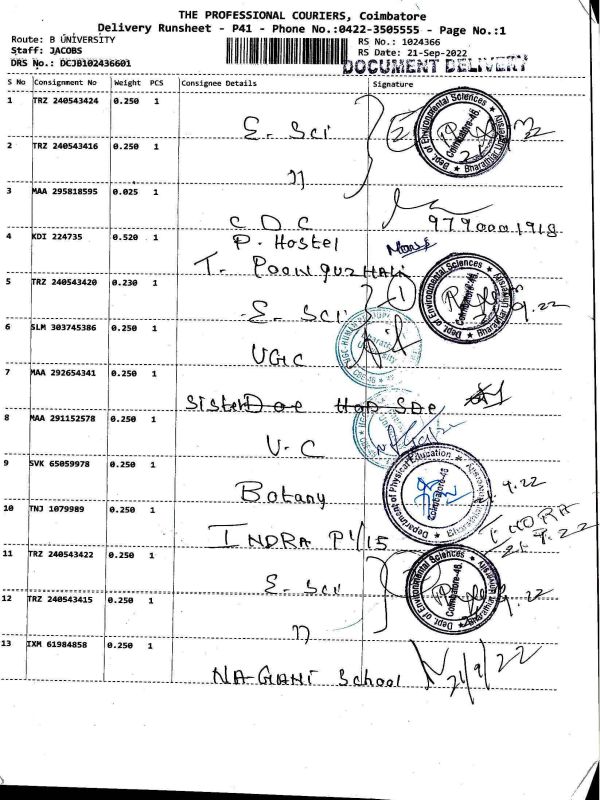 THE PROFESSIONAL COURIERS, Coimbatore
Delivery Runsheet - P41 - Phone No.:0422-3505555 - Page No.:1
Route: B UNİVERSITY
Staff: JACOBS
DRS No.: DCJB102436601
RS No.: 1024366
RS Date: 21-Sep-2022
DOCUMENT DELIVERY
S No Consignment No Weight PCS Consignee Details Signature
1 TRZ 240543424 0.250 1
E. Sci
2 TRZ 240543416 0.250 1
Dept. of Environmental Sciences ★ Bharathiar University ★
Coimbatore-46.
22
11
3 MAA 295818595 0.025 1
CDC
979000 1918
4 KDI 224735 0.520 1
P. Hostel
T. Poonguzhali
5 TRZ 240543420 0.230 1
E. Sci
1
Dept. of Environmental Sciences ★ Bharathiar University ★
Coimbatore-46.
9.22
6 SLM 303745386 0.250 1
UGC
7 MAA 292654341 0.250 1
8 MAA 291152578 0.250 1
V.C
9 SVK 65059978 0.250 1
Botany
Department of Physical Education ★ Bharathiar University ★
Coimbatore-46
9.22
10 TNJ 1079989 0.250 1
INDRA P1/15
INDRA
21.9.22
11 TRZ 240543422 0.250 1
E. Sci
Dept. of Environmental Sciences ★ Bharathiar University ★
Coimbatore-46.
9.22
12 TRZ 240543415 0.250 1
11
13 IXM 61984858 0.250 1
School
21/9/22